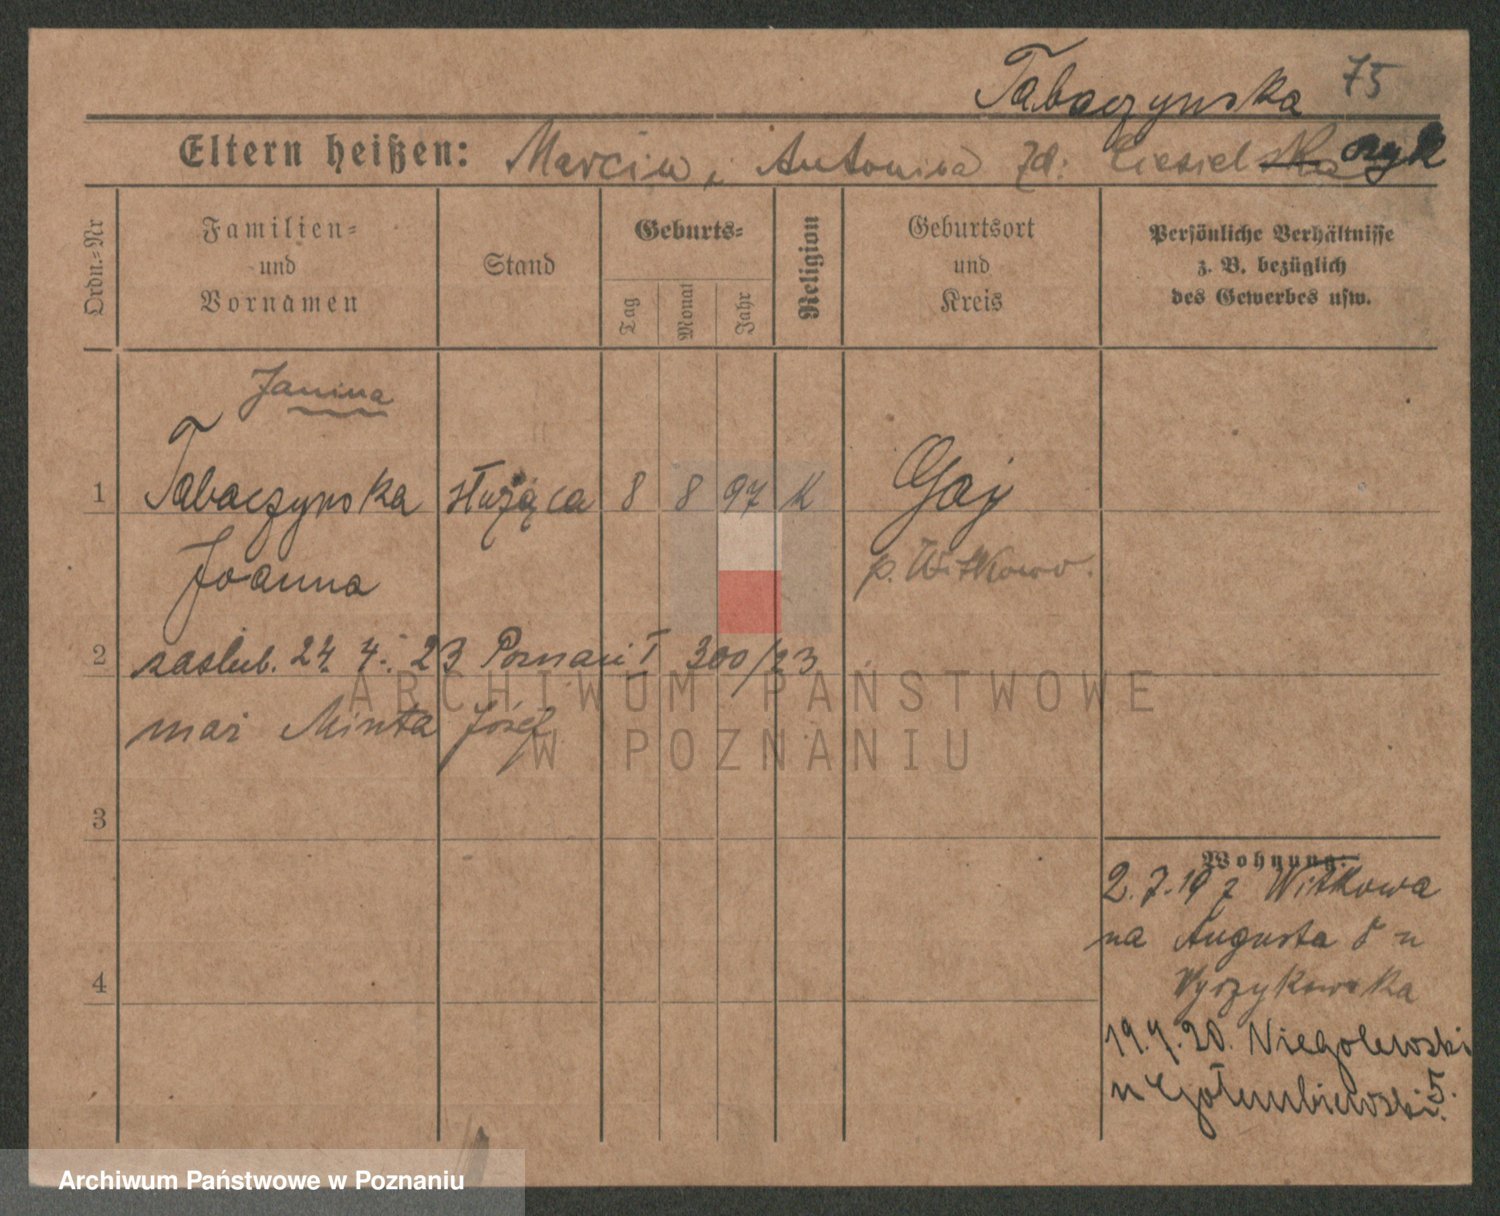 Tabaczynska 75
Eltern heißen: Marcin i Antonina Zd: Ciesielska czyk
Ordn.-Nr
Familien- und Vornamen
Stand
Geburts-
Tag
Monat
Jahr
Religion
Geburtsort und Kreis
Persönliche Verhältnisse
z. B. bezüglich
des Gewerbes usw.
Janina
1 Tabaczynska służąca 8 8 97 K Gaj
Joanna p. Witkowo.
2 zaslub. 24. 4. 23 Poznań I 300/23
mąż Minta Józef
ARCHIWUM PAŃSTWOWE
W POZNANIU
3
Wohnung:
2.7.19 z Witkowa
na Augusta 8 u
Wyrzykowska
4
19.4.20. Niegolewski
5.
u Gołembiewski.
Archiwum Państwowe w Poznaniu